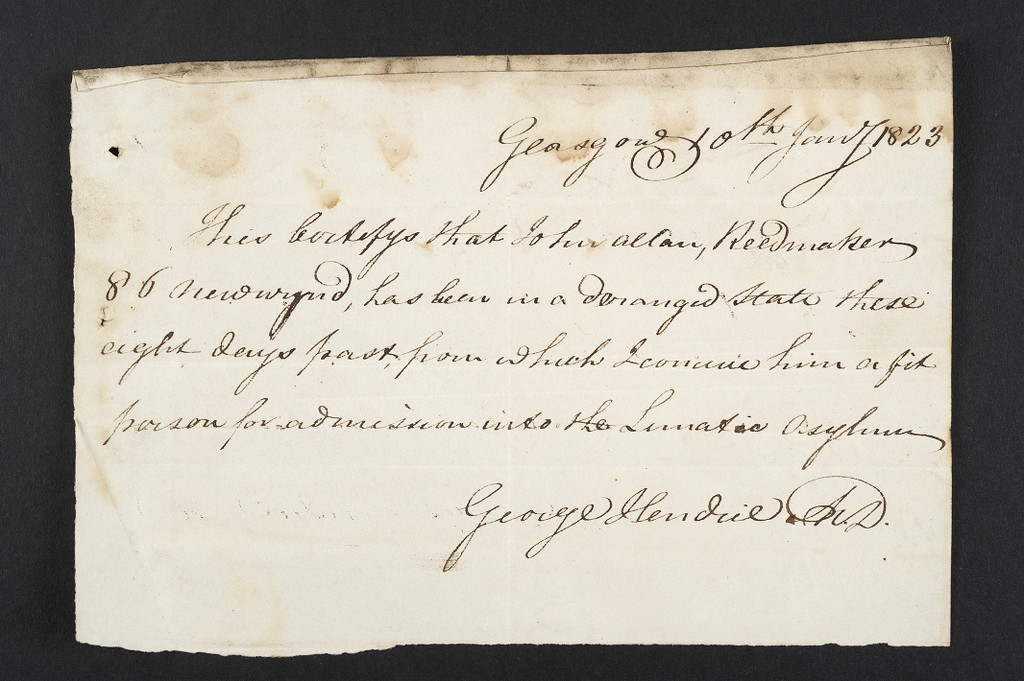 Glasgow 10th Jany 1823
This Certifys that John allan, Reedmaker
86 newwynd, has been in a deranged state these
eight days past, from which I conceive him a fit
person for admission into the Lunatic Asylum
George Hendrie M.D.